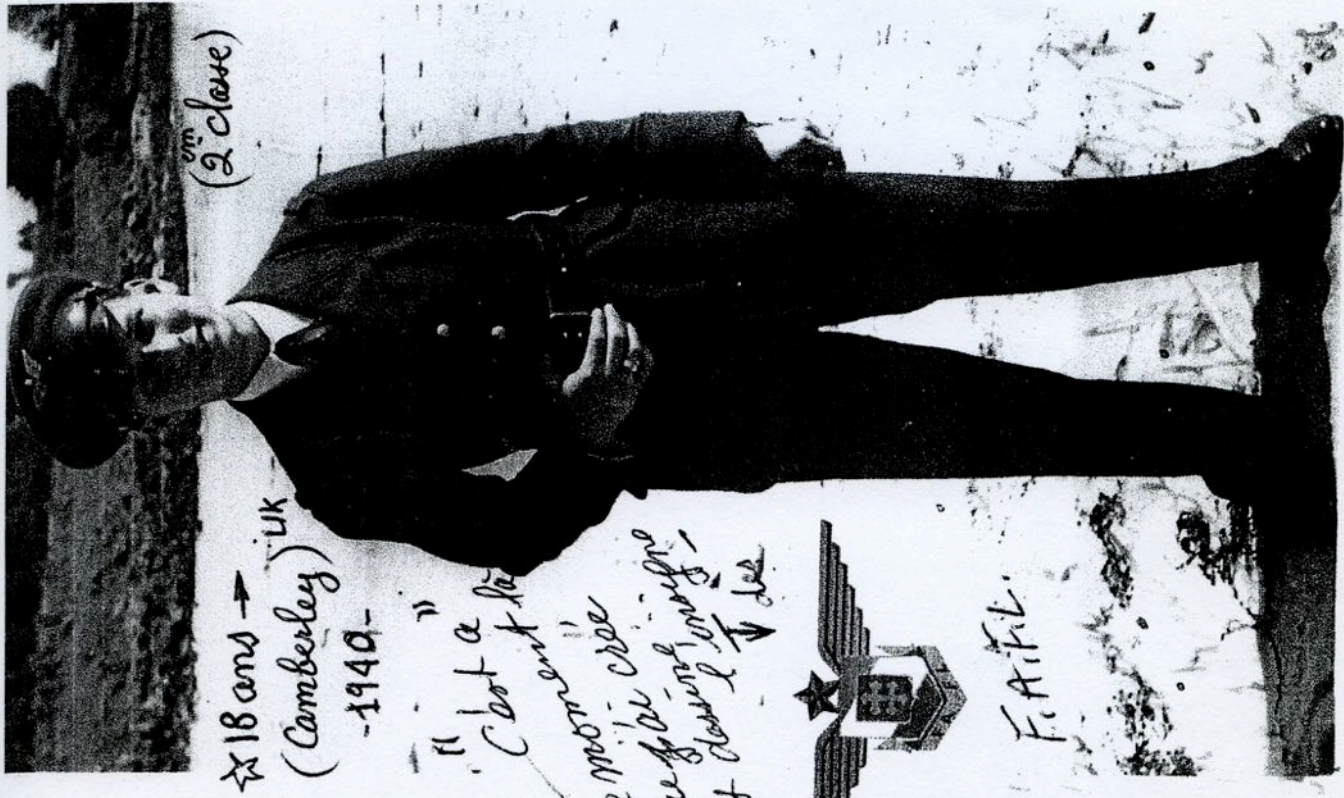 (2em classe)
☆ 18 ans →
(Camberley) UK
-1940-
"C'est a
là
moment
j'ai crée
dessiné l'insigne
↓ des
F.A.F.L.